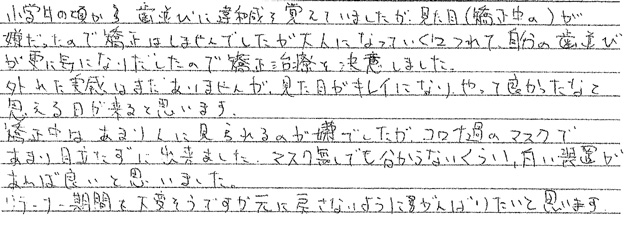 小学生の頃から歯並びに違和感を覚えていましたが、見た目(矯正中の)が
嫌だったので矯正はしませんでしたが大人になっていくにつれて、自分の歯並び
が更に気になりだしたので矯正治療を決意しました。
外れた実感はまだありませんが、見た目がキレイになり、やって良かったなと
思える日が来ると思います。
矯正中はあまり人に見られるのが嫌でしたが、コロナ過のマスクで
あまり目立たずに出来ました。マスク無しでも分からないくらい、白い装置が
あれば良いと思いました。
リテーナー期間も大変そうですが元に戻さないように がんばりたいと思います